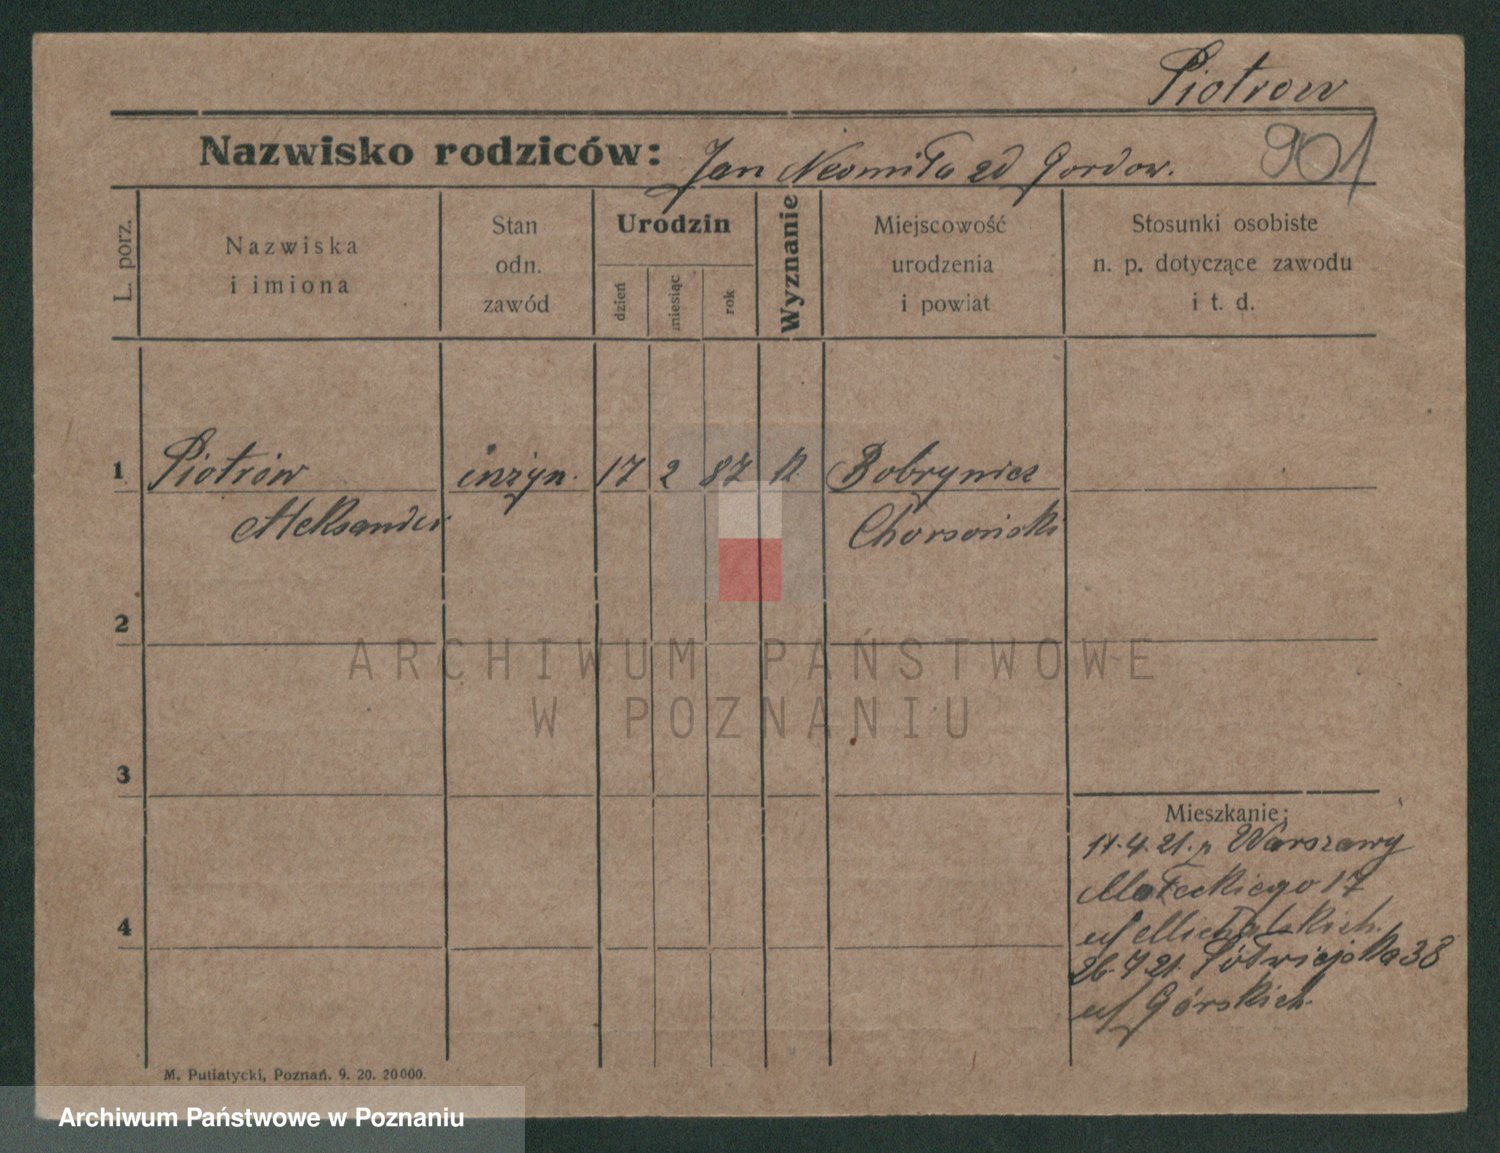 Piotrow
Nazwisko rodziców: Jan Neomiła zd Gordow. 901
L. porz.
Nazwiska
i imiona
Stan
odn.
zawód
Urodzin
dzień
miesiąc
rok
Wyznanie
Miejscowość
urodzenia
i powiat
Stosunki osobiste
n. p. dotyczące zawodu
i t. d.
1 Piotrów inżyn. 17 2 87 Bobryniez
Aleksander Chorsoński
2
ARCHIWUM PAŃSTWOWE
W POZNANIU
3
Mieszkanie:
17.4.21. z Warszawy
Małeckiego 17
u/ Michalskich.
4
26.7.21. Półwiejska 38
u/ Górskich.
M. Putiatycki, Poznań. 9. 20. 20000.
Archiwum Państwowe w Poznaniu